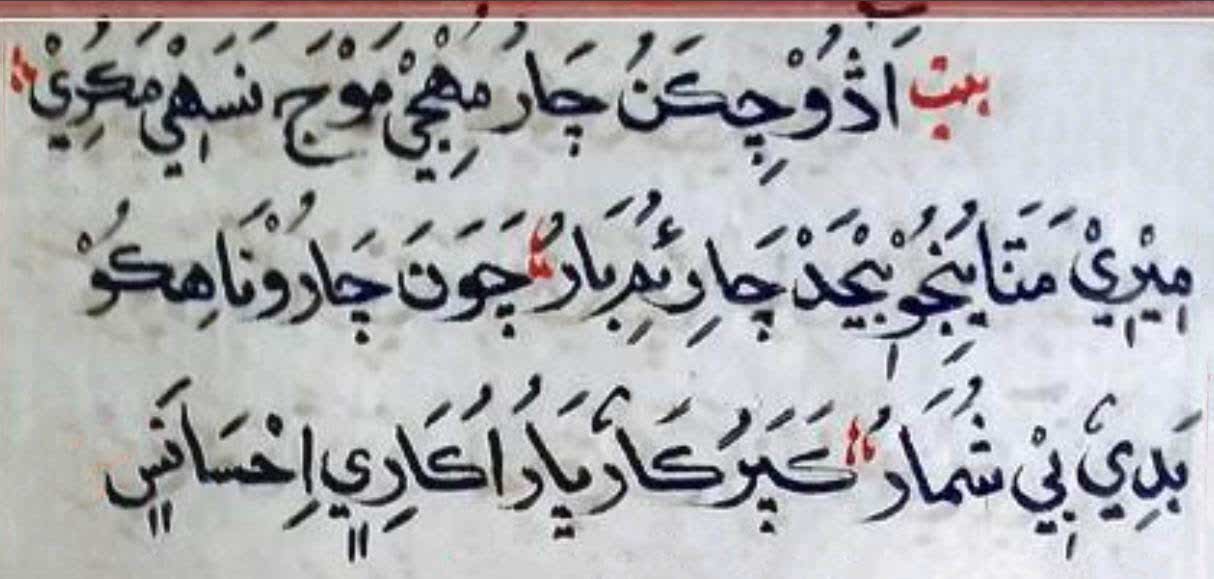 بيت اَڎُوْ چِڪَنُ چَارُ مُهِجِيْ مَوْجَ نَسَهِيْ مَڪُرِيْ
مِيْرِيْ مَتَنَا پُنْجُوْ بْيْحَدْ چَارِ بَارُ چَوَنَ چَارُوْنَاهِڪُوْ
بَدِيْ بِيْ شُمَارُ ڪَپَرُ ڪَارَ يَارُ اُڪَارِيِ اِحْسَانَسِ